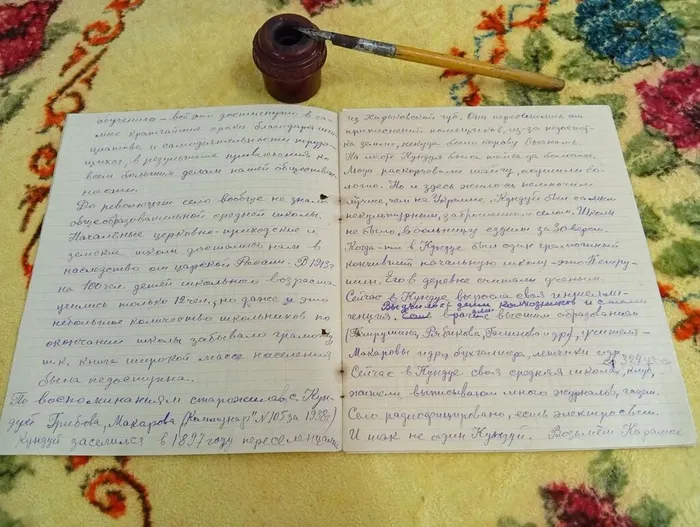 обучения – всё это достигнуто в са-
мые кратчайшие сроки благодаря ини
циативе и самодеятельности трудя-
щихся, в результате привлечения ко
всем большим делам нашей обществен-
ности.
До революции село вообще не знало
общеобразовательной средней школы.
Начальные церковно-приходские и
земские школы достались нам в
наследство от царской России. В 1913г
на 100 чел. детей школьного возраста
училось только 12 чел., но даже и это
небольшое количество школьников по
окончании школы забывало грамоту
т.к. книга широкой массе населения
была недоступна.
По воспоминаниям старожилов с. Кун-
дуй Грибова, Макарова (Коммунар" N 105 за 1938г)
Кундуй заселился в 1897 году переселенцами
из Харьковской губ. Они переселились от
притеснений помещиков, из-за нехватк
и земли, некуда было корову выгнать.
На месте Кундуя была тайга да болото.
Люди раскорчевали тайгу, осушили бо-
лото. Но и здесь жилось немногим
лучше, чем на Украине. Кундуй был самым
некультурным, заброшенным селом. Школы
не было, в больницу ездили за 30 верст.
Когда-то в Кундуе был один грамотный
кончивший начальную школу – это Петру-
шин. Его в деревне считали ученым.
Сейчас в Кундуе выросла своя интеллиг-
Выучились дети колхозников и стали
генция. врачи с высшим образованием
(Петрушина, др), учителя –
Макаровы и др, бухгалтера, механики и др.
Сейчас в Кундуе своя средняя школа, клуб,
жители выписывают много журналов, газет.
Село радиофицировано, есть электросвет.
И так не один Кундуй. Возьмём